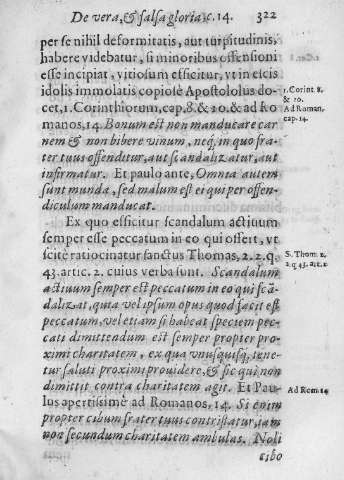 De vera, & falsa gloria: c. 14. 322
per se nihil deformitatis, aut turpitudinis,
habere videbatur, si minoribus offensioni
esse incipiat, vitiosum efficitur, vt in escis
idolis immolatis copiose Apostololus do-
cet, 1. Corinthiorum, cap. 8. & 10. & ad Ro
manos, 14. Bonum est non manducare car
nem & non bibere vinum, neq; in quo fra-
ter tuus offenditur, aut scandalizatur, aut
infirmatur. Et paulo ante, Omnia autem
sunt munda, sed malum est ei qui per offen-
diculum manducat.
Ex quo efficitur scandalum actiuum
semper esse peccatum in eo qui offert, vt
scitè ratiocinatur sanctus Thomas, 2. 2. q.
43. artic. 2. cuius verba sunt. Scandalum
actiuum semper est peccatum in eo qui scã-
dalizat, quia vel ipsum opus quod facit est
peccatum, vel etiam si habeat speciem pec-
cati dimittendum est semper propter pro-
ximi charitatem, ex qua vnusquisq; tene-
tur saluti proximi prouidere, & sic qui non
dimittit contra charitatem agit. Et Pau-
lus apertissimè ad Romanos, 14. Si enim
propter cibum frater tuus contristatur, iam
non secundum charitatem ambulas. Noli
cibo
1. Corint. 8.
& 10.
Ad Roman.
cap. 14.
S. Thom. 2.
2. q. 43. art. 2
Ad Rom. 14